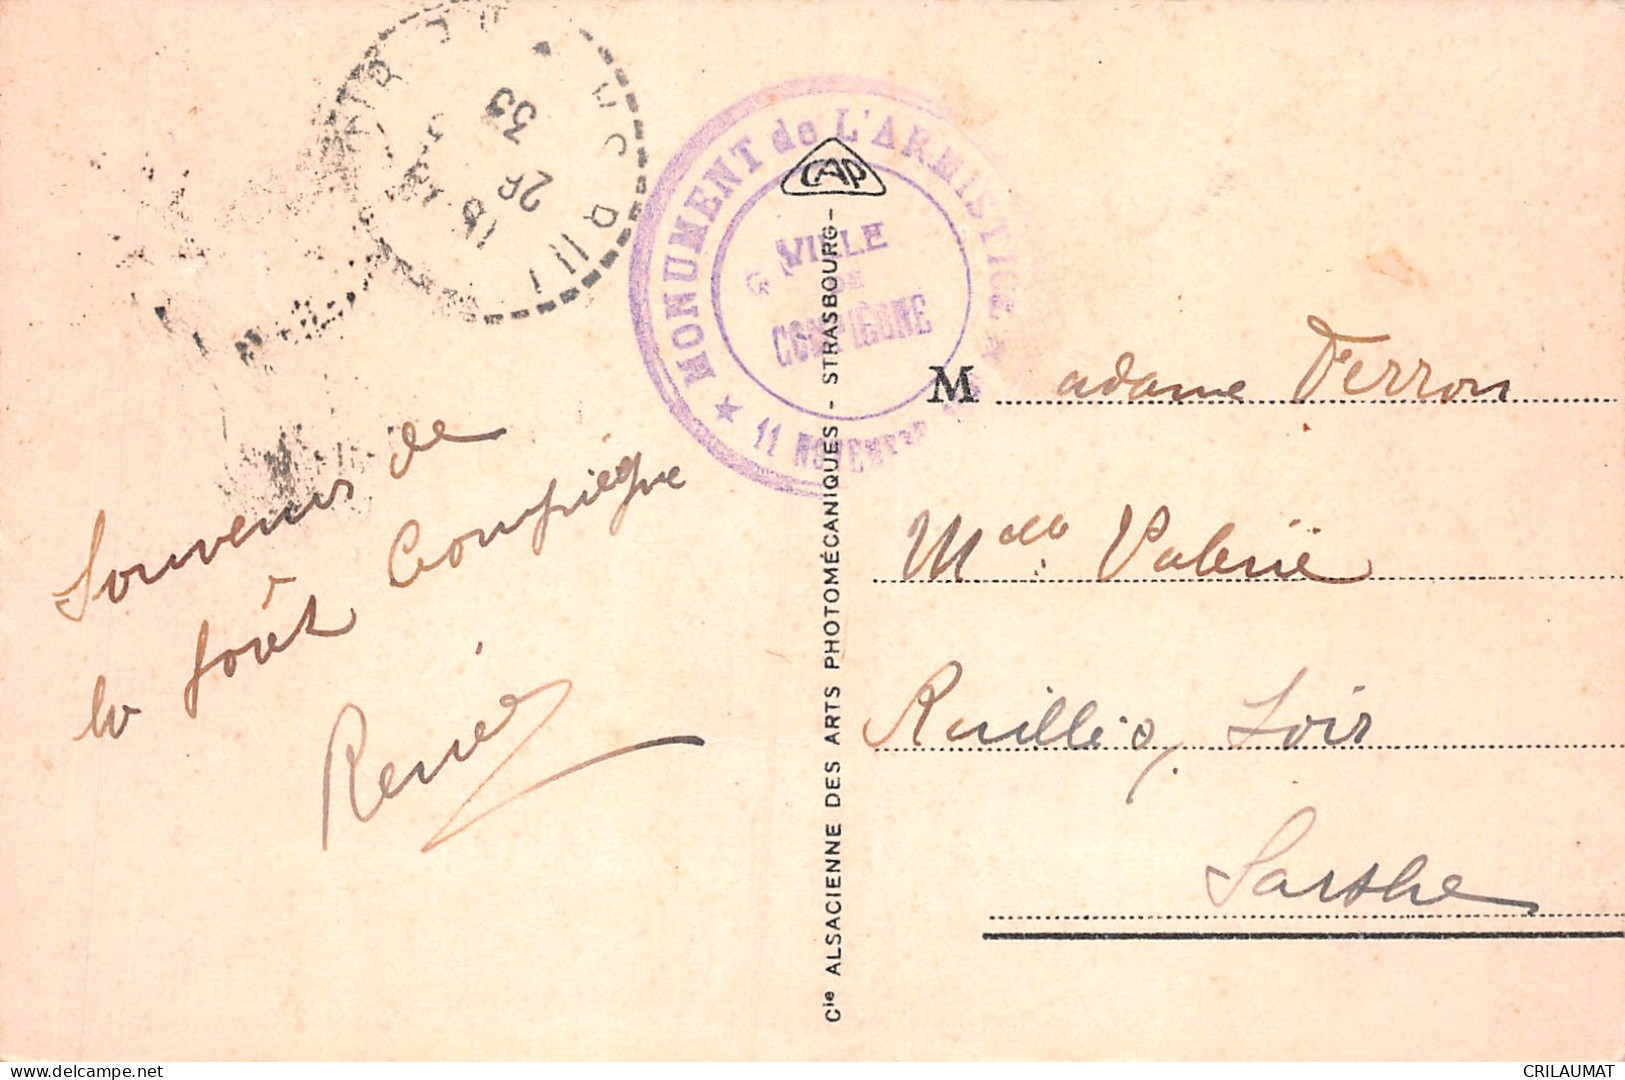 MONUMENT de L'ARMISTICE
VILLE
DE
COMPIÈGNE
★ 11 NOVEMBRE ★
CAP
15
26
33
Souvenir de
la forêt Compiègne
René
Cie ALSACIENNE DES ARTS PHOTOMÉCANIQUES - STRASBOURG -
Madame Ferron
Mdlle Valerie
Ruillé s/ Loir
Sarthe
www.delcampe.net
CRILAUMAT